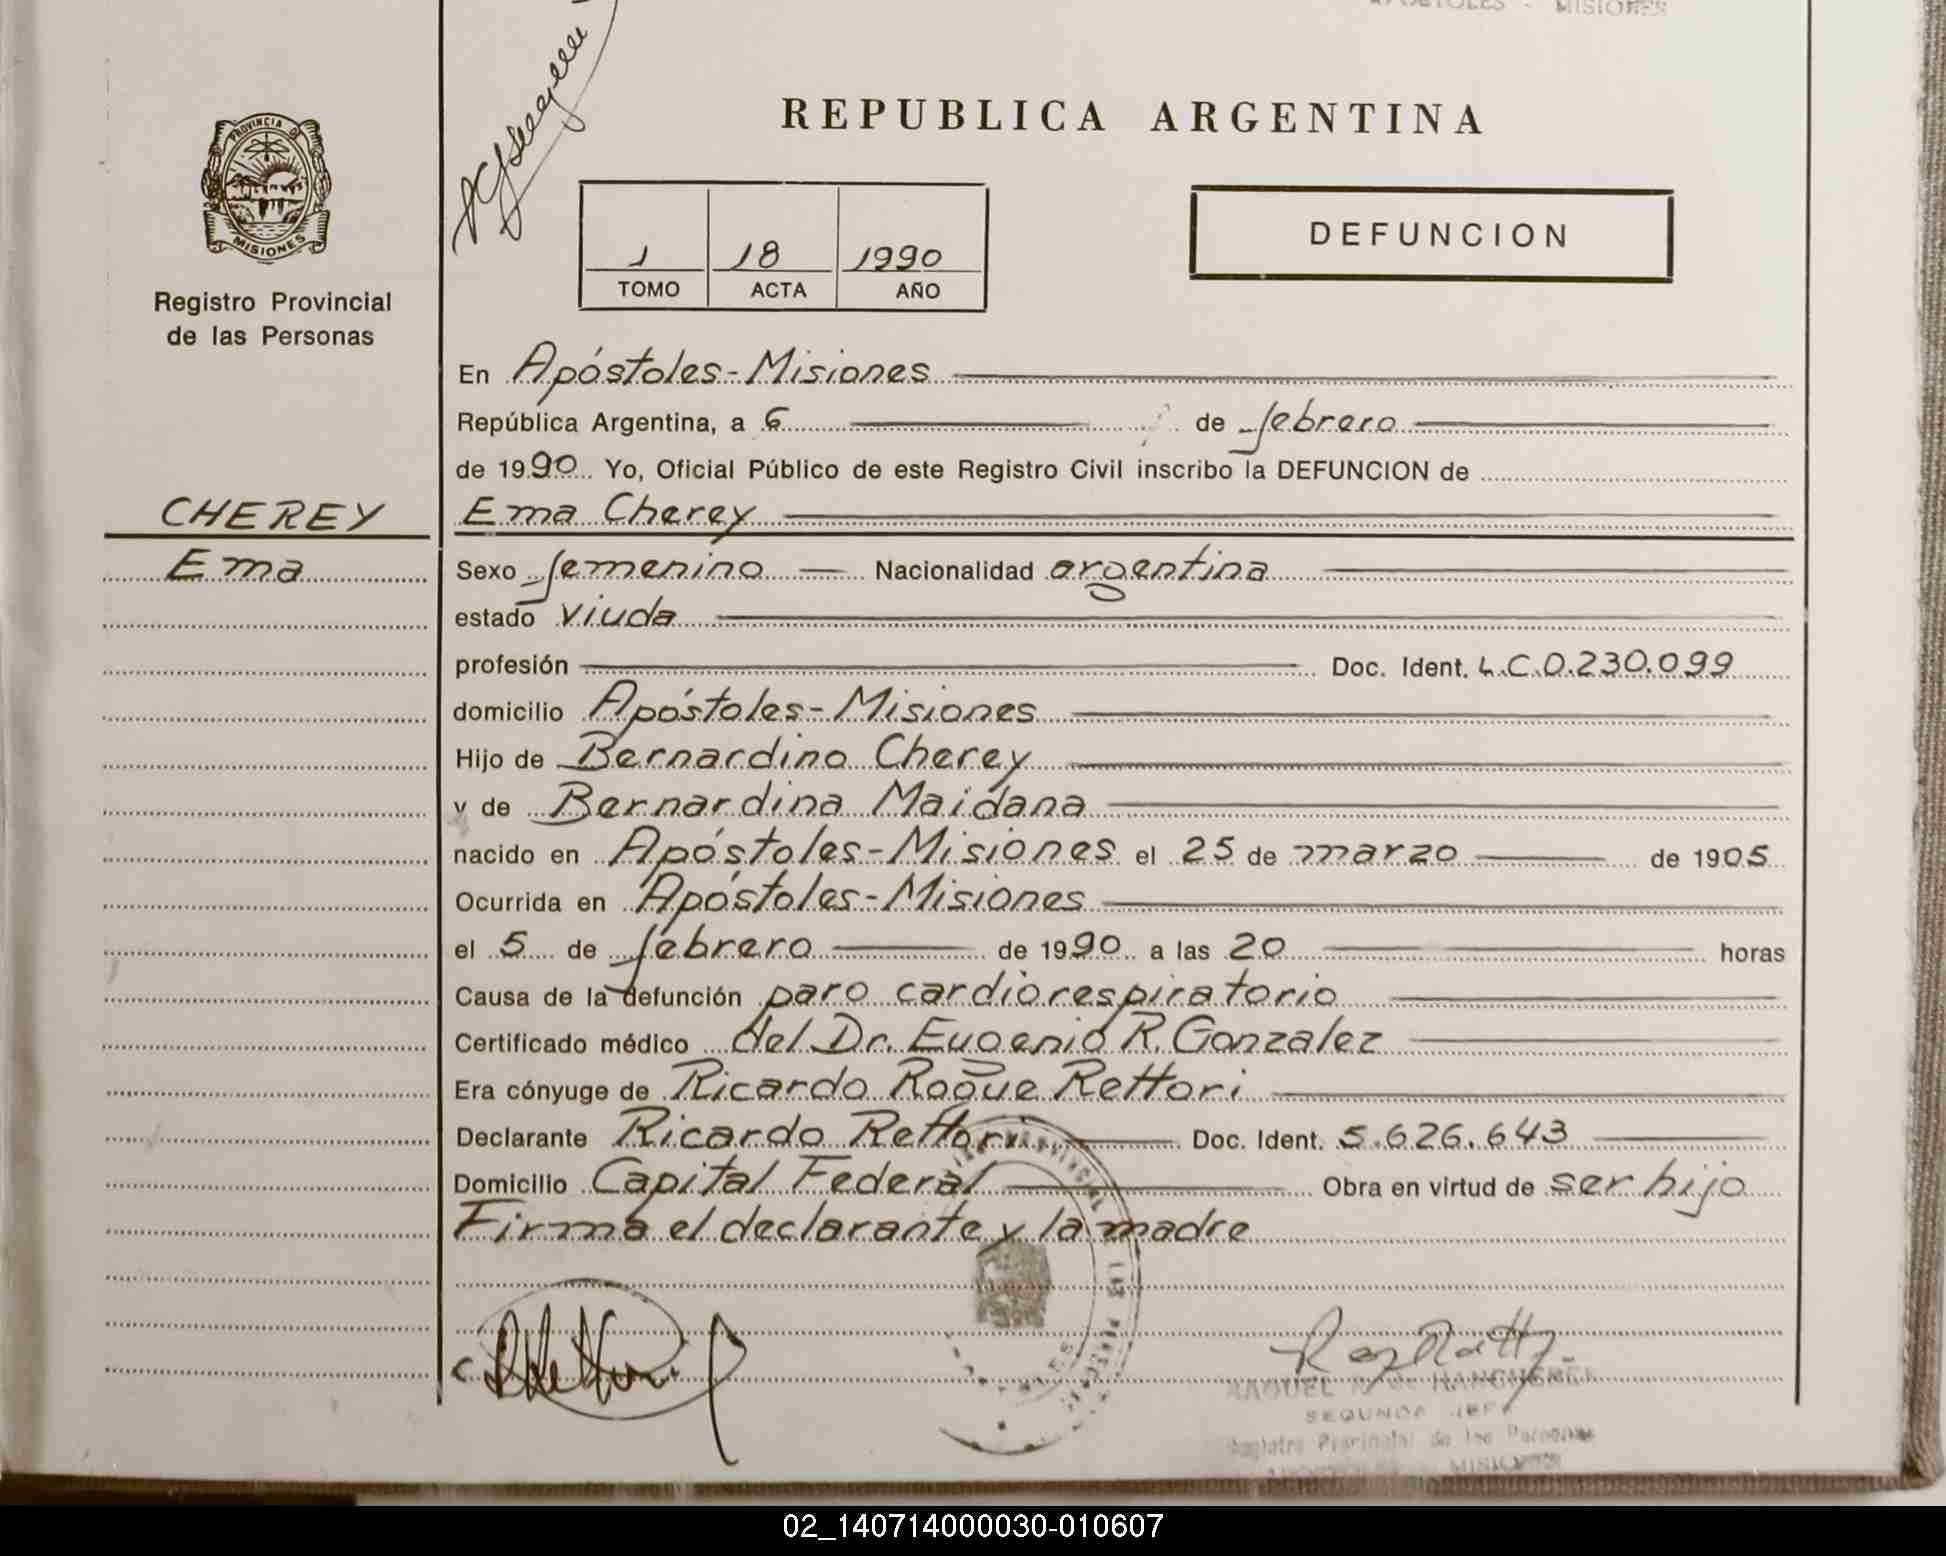 APOSTOLES - MISIONES
REPUBLICA ARGENTINA
PROVINCIA DE
MISIONES
Registro Provincial
de las Personas
1 18 1990
TOMO ACTA AÑO
DEFUNCION
En Apóstoles-Misiones
República Argentina, a 6 de febrero
de 1990 Yo, Oficial Público de este Registro Civil inscribo la DEFUNCION de
CHEREY
Ema
Ema Cherey
Sexo femenino Nacionalidad argentina
estado viuda
profesión Doc. Ident. L.C.0.230.099
domicilio Apóstoles-Misiones
Hijo de Bernardino Cherey
y de Bernardina Maidana
nacido en Apóstoles-Misiones el 25 de marzo de 1905
Ocurrida en Apóstoles-Misiones
el 5 de febrero de 1990 a las 20 horas
Causa de la defunción paro cardiorespiratorio
Certificado médico del Dr. Eugenio R. Gonzalez
Era cónyuge de Ricardo Roque Rettori
Declarante Ricardo Rettori Doc. Ident. 5.626.643
Domicilio Capital Federal Obra en virtud de ser hijo
Firma el declarante y la madre
RAQUEL
SEGUNDA JEFE
Registro Provincial de las Personas
MISIONES
02_140714000030-010607